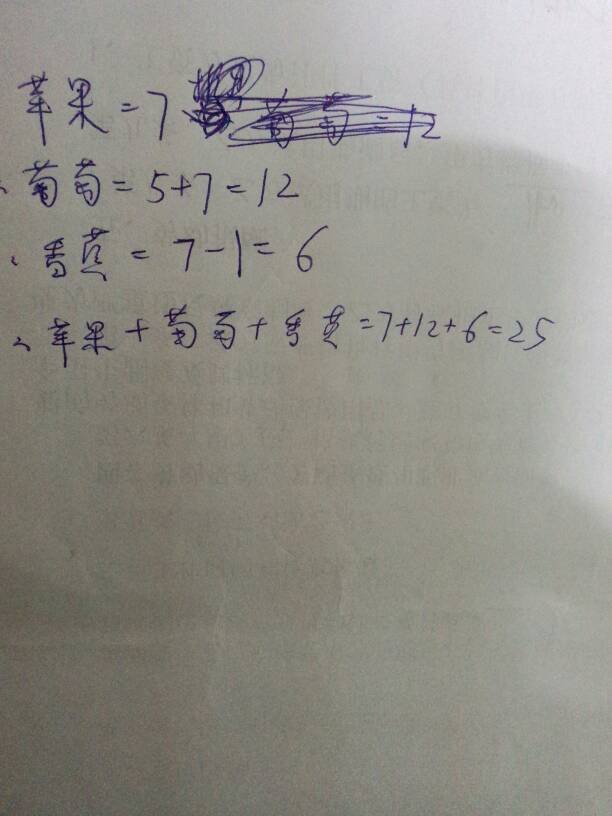 苹果=7
∴葡萄=5+7=12
∴香蕉=7-1=6
∴苹果+葡萄+香蕉=7+12+6=25